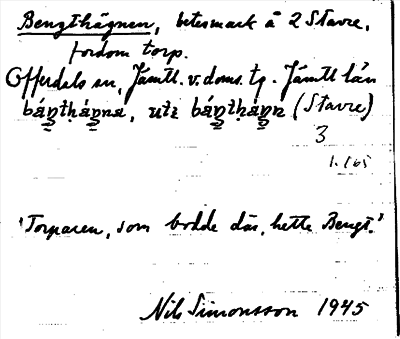 Bengthägnen, betesmark å 2 Stavre,
fordom torp.
Offerdals sn, Jämtl. v. doms. tg. Jämtl län
báŋthá̱ŋna, uti báŋthá̱ŋn (Stavre)
3
1.165
'Torparen, som bodde där, hette Bengt.'
Nils Simonsson 1945